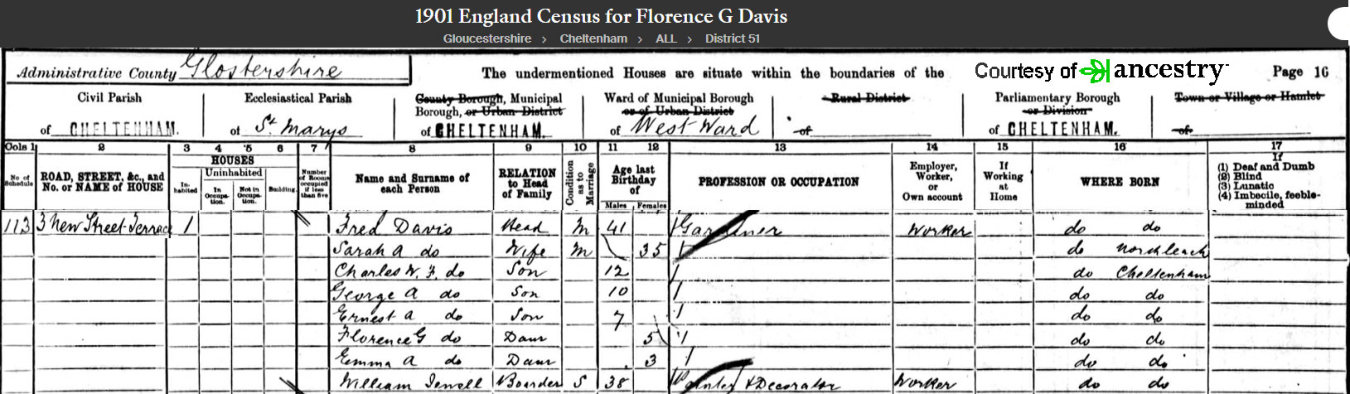 1901 England Census for Florence G Davis
Gloucestershire > Cheltenham > ALL > District 51
Administrative County Glostershire The undermentioned Houses are situate within the boundaries of the Courtesy of ancestry Page 16
Civil Parish Ecclesiastical Parish County Borough, Municipal Borough, or Urban District Ward of Municipal Borough or of Urban District Rural District Parliamentary Borough or Division Town or Village or Hamlet
of CHELTENHAM. of St. Marys of CHELTENHAM. of West Ward of of CHELTENHAM. of
Cols 1 2 3 4 5 6 7 8 9 10 11 12 13 14 15 16 17
No. of Schedule ROAD, STREET, &c., and No. or NAME of HOUSE HOUSES Inhabited Uninhabited In Occupation. Not in Occupation. Building Number of Rooms occupied if less than five Name and Surname of each Person RELATION to Head of Family Condition as to Marriage Age last Birthday of Males Females PROFESSION OR OCCUPATION Employer, Worker, or Own account If Working at Home WHERE BORN If (1) Deaf and Dumb (2) Blind (3) Lunatic (4) Imbecile, feeble-minded
113 3 New Street Terrace 1 Fred Davis Head M 41 Gardiner Worker do do
Sarah A do Wife M 35 do Northleach
Charles W. F. do Son 12 do Cheltenham
George A do Son 10 do do
Ernest A do Son 7 do do
Florence G do Daur 5 do do
Emma A do Daur 3 do do
William Jewell Boarder S 38 Painter & Decorator Worker do do